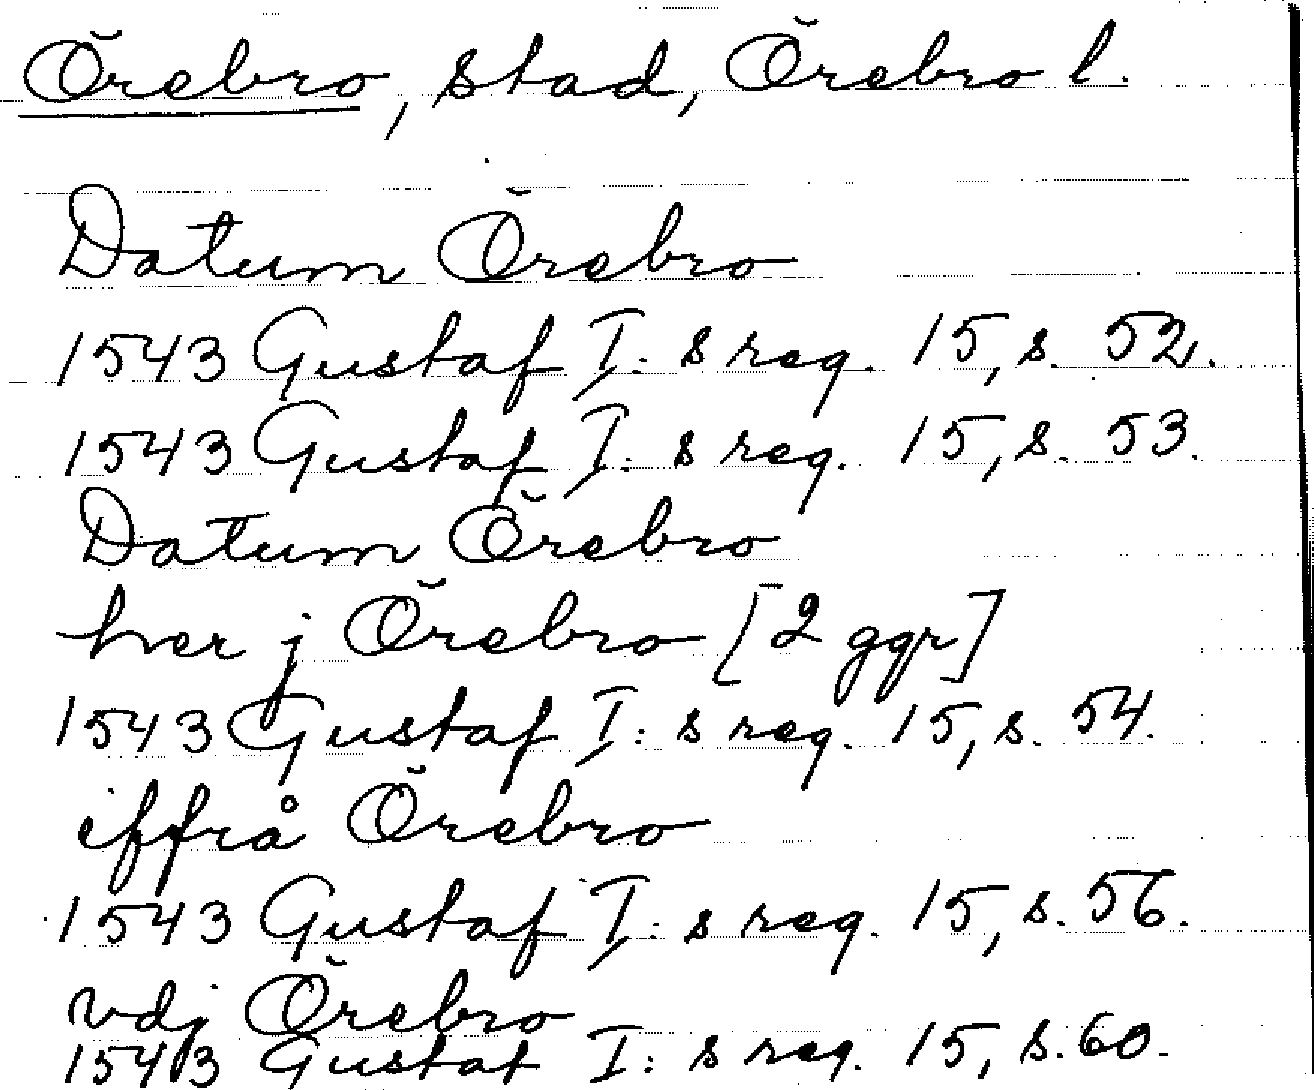 Örebro, stad, Örebro l.
Datum Örebro
1543 Gustaf I: s reg. 15, s. 52.
1543 Gustaf I: s reg. 15, s. 53.
Datum Örebro
hver j Örebro [2 ggr]
1543 Gustaf I: s reg. 15, s. 54.
iffrå Örebro
1543 Gustaf I: s reg. 15, s. 56.
vdj Örebro
1543 Gustaf I: s reg. 15, s. 60.